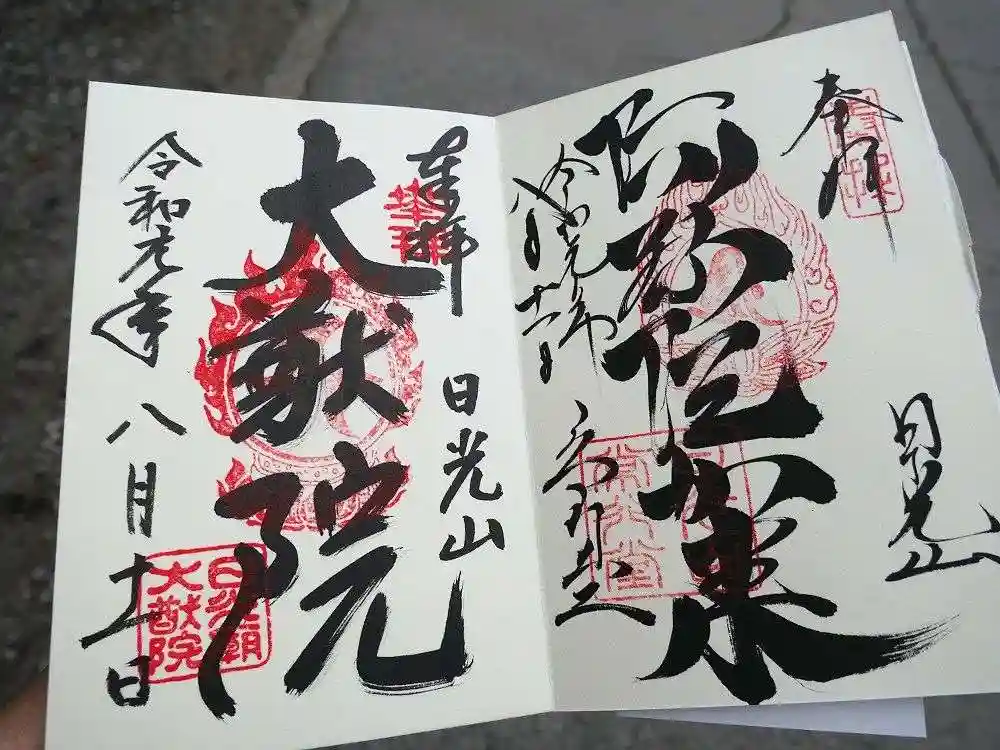 奉拝
日光山
阿弥陀如来
令和元年
八月十一日
常行堂
常行堂
奉拝
日光山
大猷院
令和元年八月十一日
日光廟
大猷院